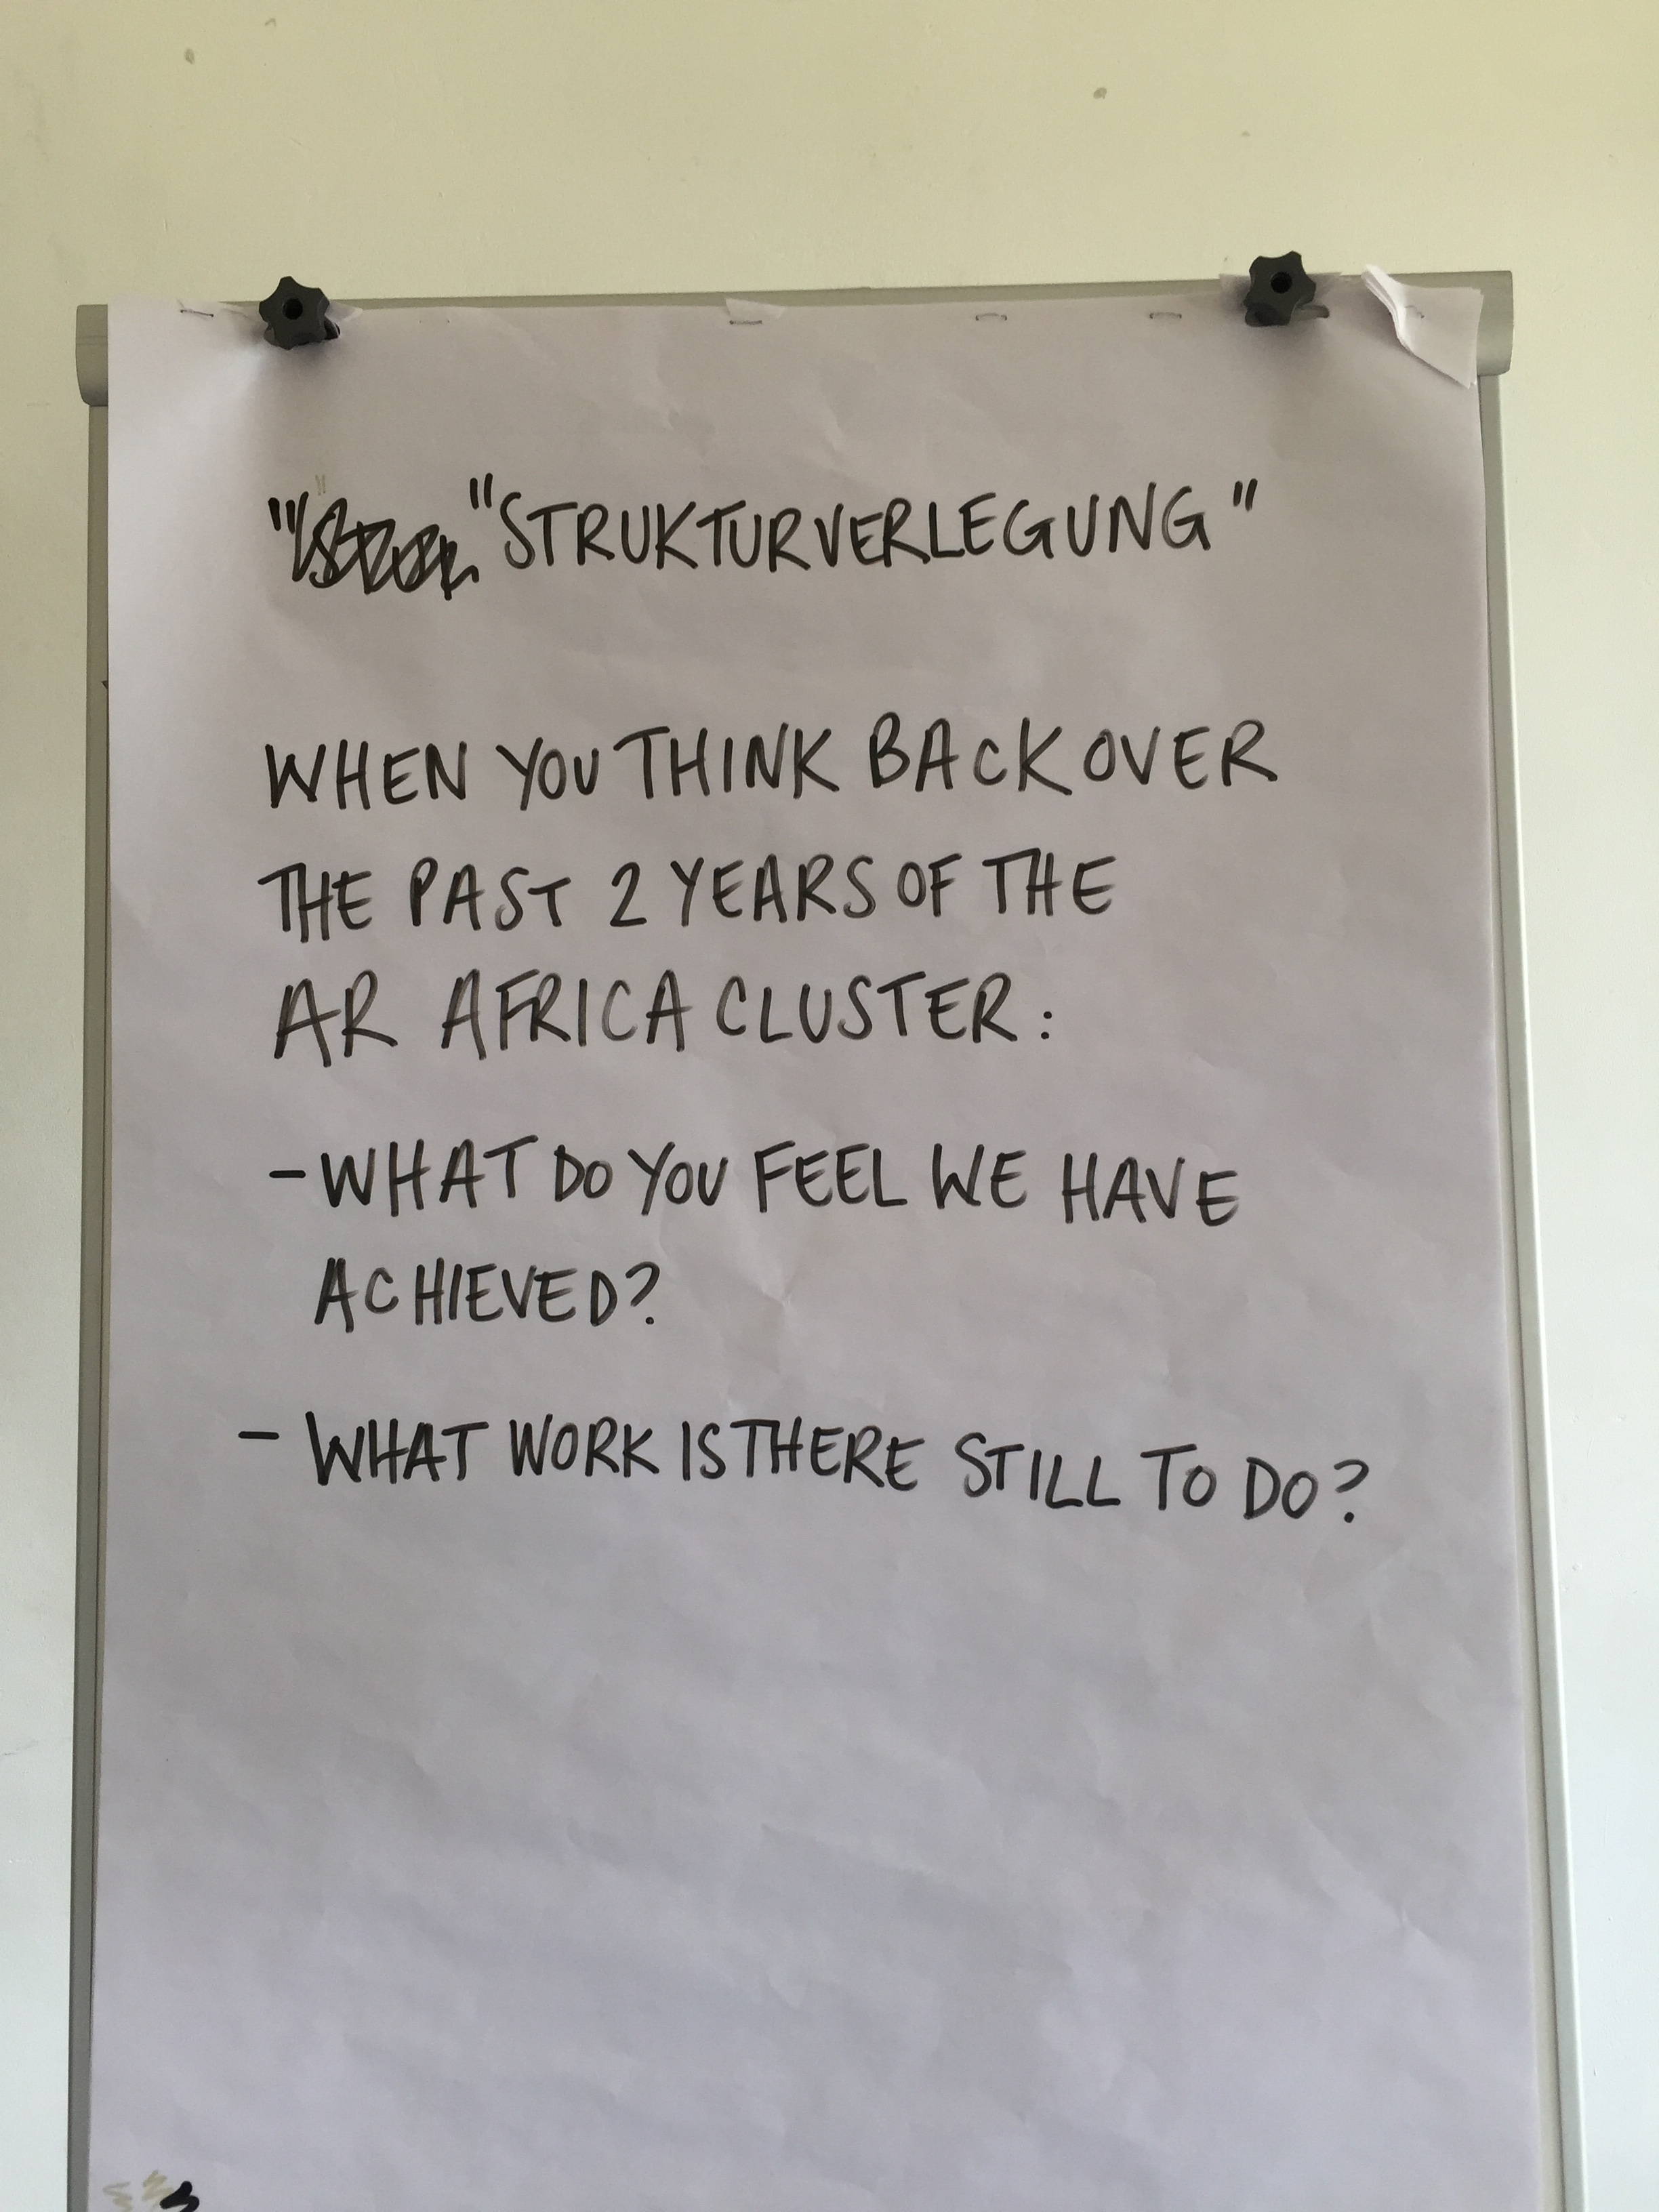 "STRUKTURVERLEGUNG"
WHEN YOU THINK BACK OVER
THE PAST 2 YEARS OF THE
AR AFRICA CLUSTER:
- WHAT DO YOU FEEL WE HAVE
ACHIEVED?
- WHAT WORK IS THERE STILL TO DO?